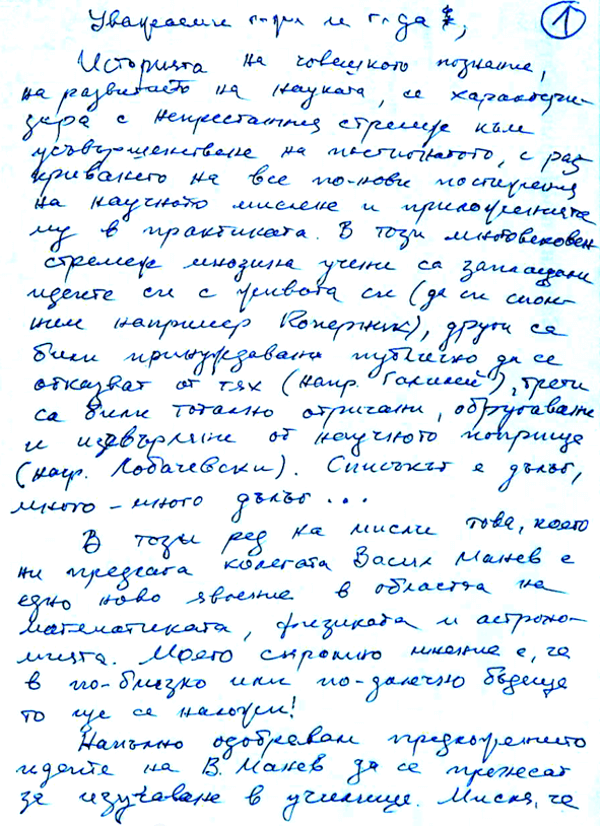 Уважаеми г-ри и г-да,
1
Историята на човешкото познание,
на развитието на науката, се характери-
зира с непрестанния стремеж към
усъвършенстване на постигнатото, с раз
криването на все по-нови постижения
на научното мислене и приложенията
му в практиката. В този многовековен
стремеж мнозина учени са заплащали
идеите си с живота си (да си спом-
ним например Коперник), други са
били принуждавани публично да се
отказват от тях (напр. Галилей), трети
са били тотално отричани, обругавани
и изхвърляни от научното поприще
(напр. Лобачевски). Списъкът е дълъг,
много-много дълъг ...
В този ред на мисли това, което
ни предлага колегата Васил Манев е
едно ново явление в областта на
математиката, физиката и астроно-
мията. Моето скромно мнение е, че
в по-близко или по-далечно бъдеще
то ще се наложи!
Напълно одобрявам предложението
идеите на В. Манев да се пренесат
за изучаване в училище. Мисля, че